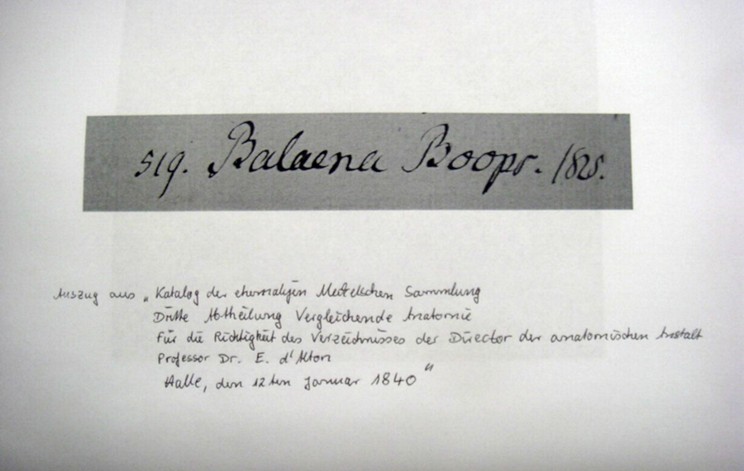 519. Balaena Boops. 1825.
Auszug aus „Katalog der ehemaligen Meckelschen Sammlung
Dritte Abtheilung Vergleichende Anatomie
Für die Richtigkeit des Verzeichnisses der Director der anatomischen Anstalt
Professor Dr. E. d'Alton
Halle, den 12ten Januar 1840"